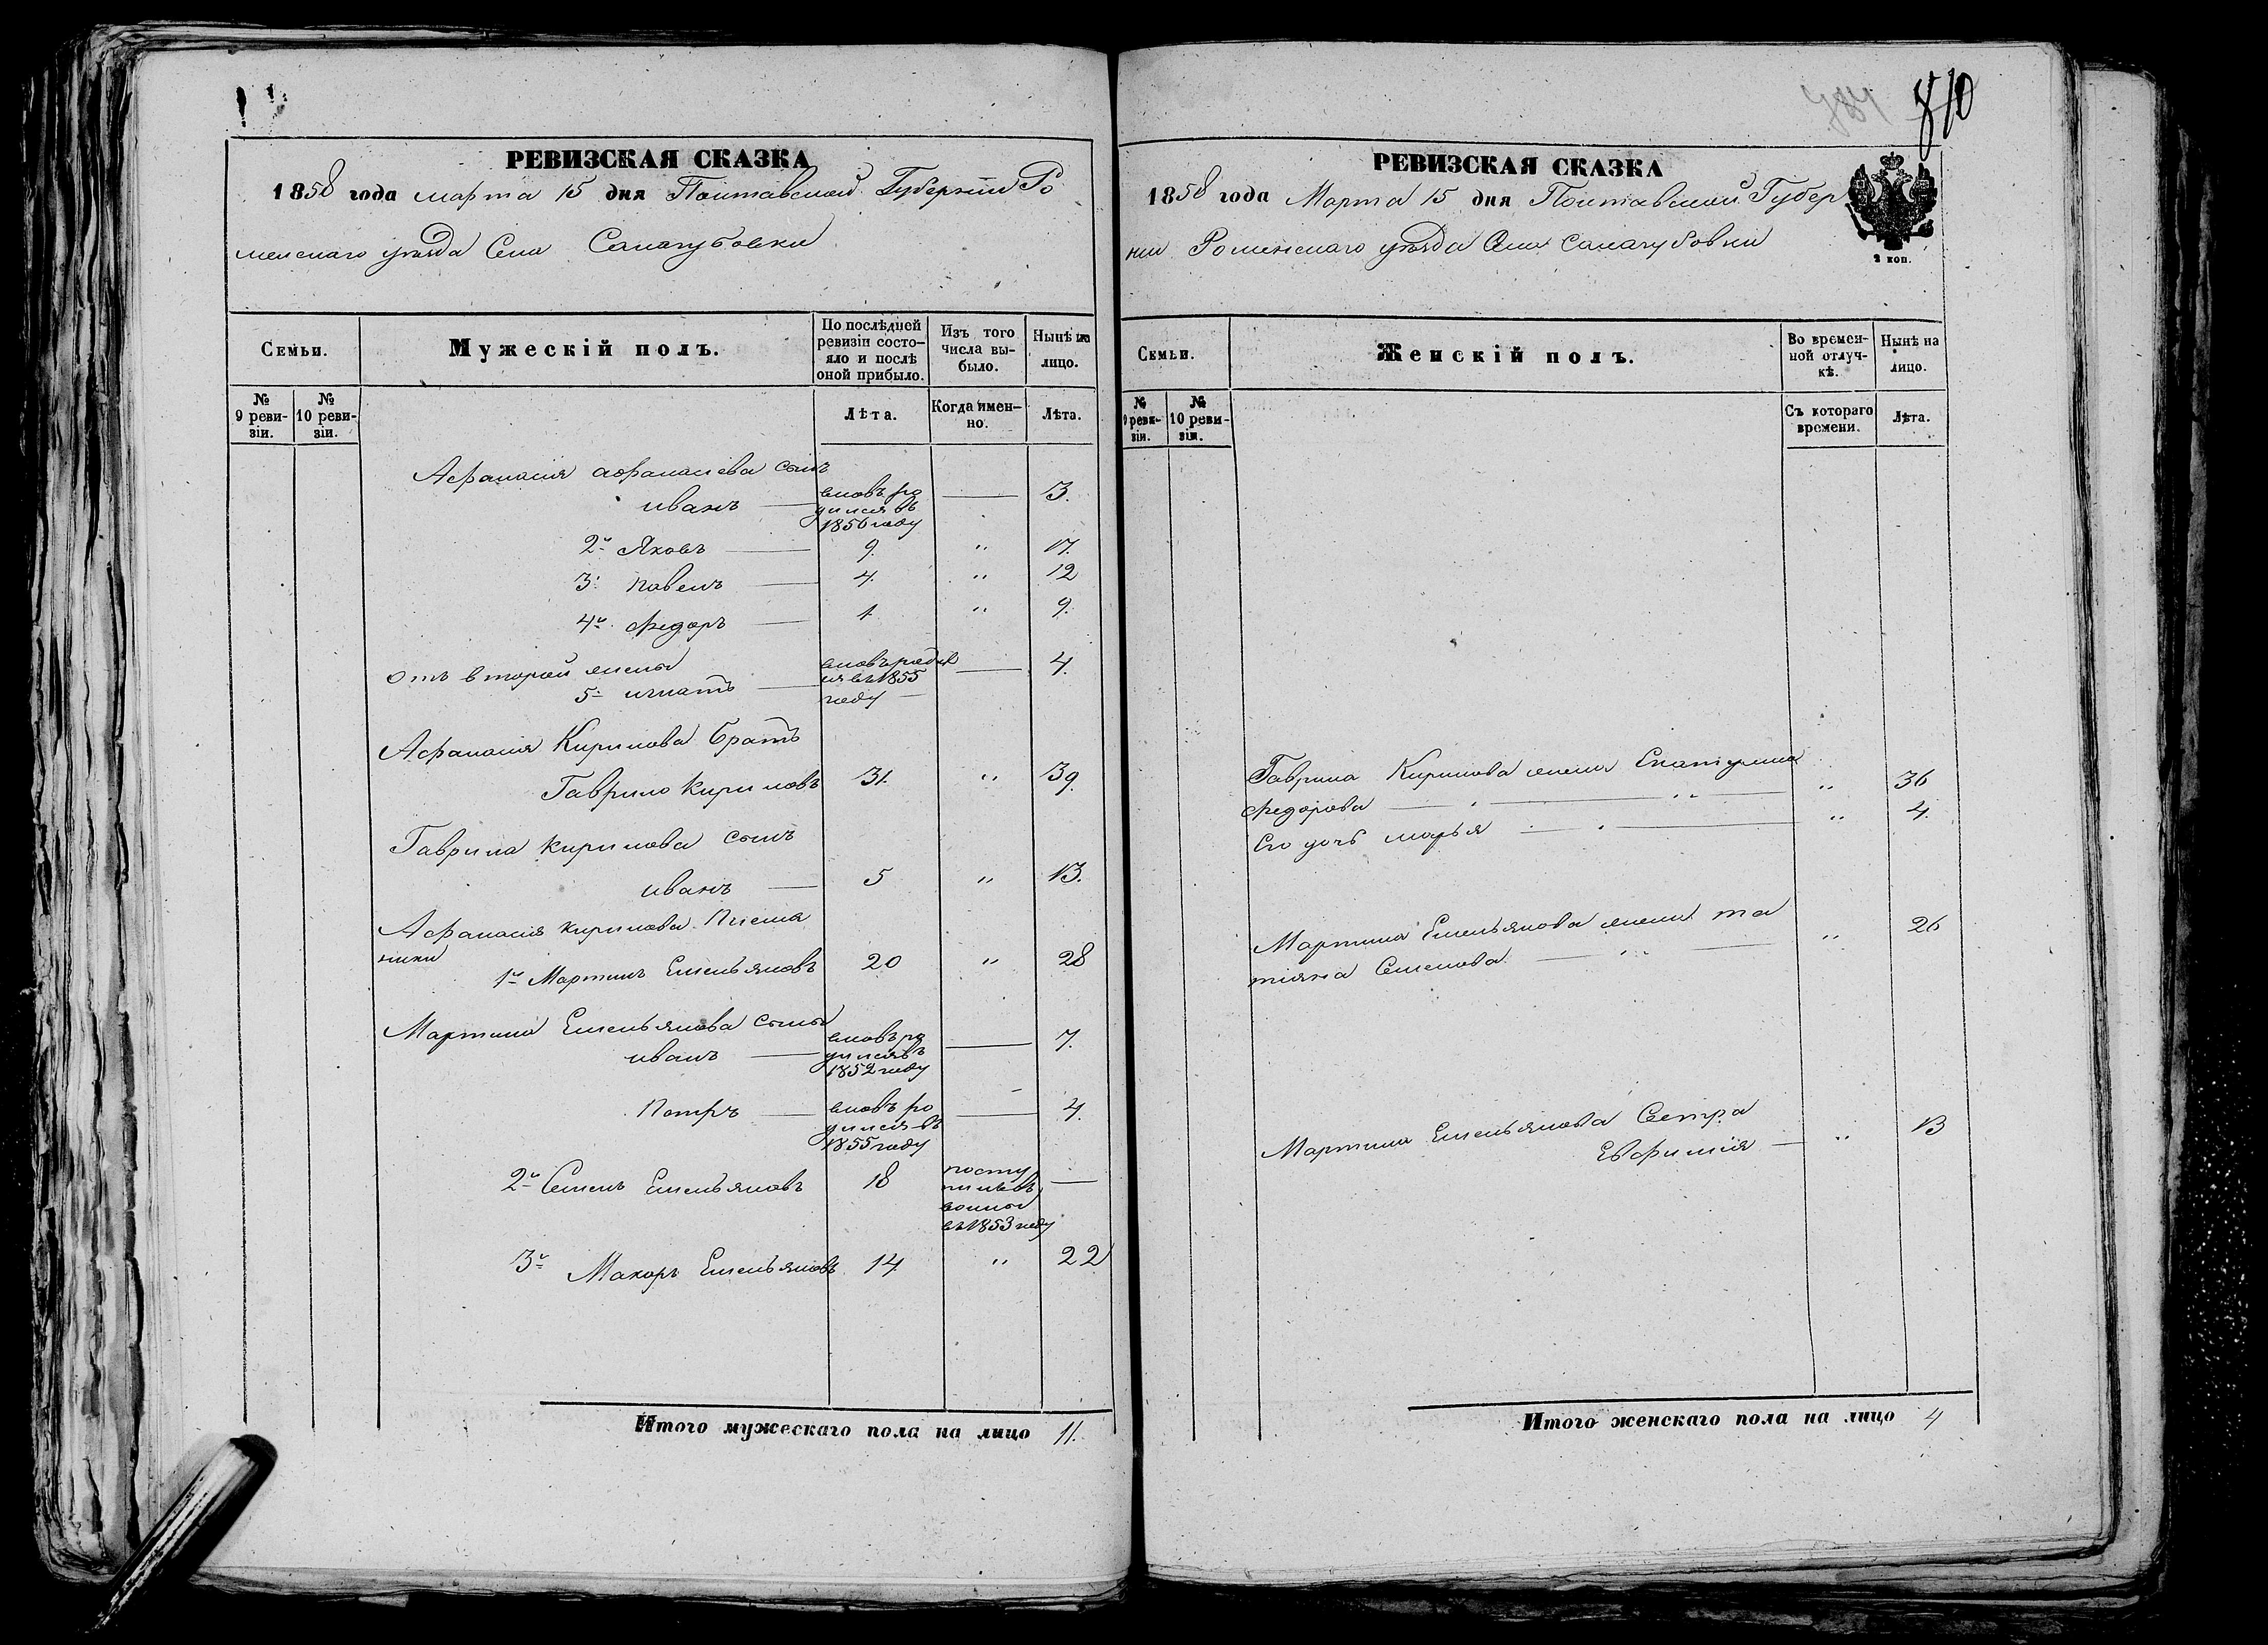 РЕВИЗСКАЯ СКАЗКА
1858 года марта 15 дня Полтавской Губерніи Ро
менскаго уѣзда Села Салагубовки
Семьи.
Мужескій полъ.
По послѣдней ревизіи состо-
яло и послѣ
оной прибыло.
Изъ того
числа вы-
было.
Нынѣ на
лицо.
№
9 реви-
зіи.
№
10 реви-
зіи.
Лѣта.
Когда имен-
но.
Лѣта.
Афанасія афанасіева сынъ
иванъ вновь ро 3.
дился въ
1856 году
2й Яковъ 9. " 17.
3й павелъ 4. " 12
4й Федоръ 1 " 9.
отъ второй жены
5й игнатъ вновь родил 4.
ся въ 1855
году
Афанасія Кирилова братъ
Гаврило Кириловъ 31. " 39.
Гаврила Кирилова сынъ
иванъ 5 " 13.
Афанасія Кирилова племя
ники
1й Мартинъ Емельяновъ 20 " 28
Мартина Емельянова сыны
иванъ вновь ро 7.
дился въ
1852 году
петръ вновь ро 4.
дился въ
1855 году
2й Семенъ Емельяновъ 18 посту
пилъ въ
воины
въ 1853 году
3й Макаръ Емельяновъ 14 " 22
Итого мужескаго пола на лицо 11.
784 810
РЕВИЗСКАЯ СКАЗКА
1858 года Марта 15 дня Полтавской Губер
ніи Роменскаго уѣзда Села Салагубовки
2 коп.
Семьи.
Женскій полъ.
Во времен-
ной отлуч-
кѣ.
Нынѣ на
лицо.
№
9 реви-
зіи.
№
10 реви-
зіи.
Съ котораго
времени.
Лѣта.
Гаврила Кирилова жена
Федорова " 36
Его дочь марья " 4.
Мартина Емельянова жена та
тіяна Семенова " 26
Мартина Емельянова Сестра
Евфимія " 13
Итого женскаго пола на лицо 4